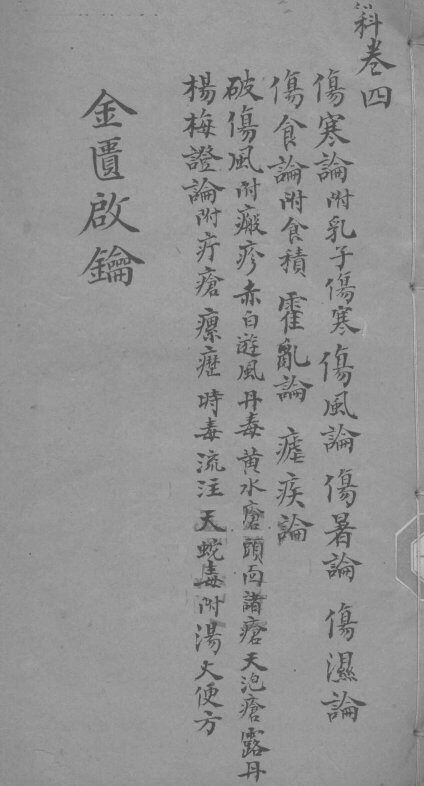 科卷四
傷寒論附乳子傷寒 傷風論 傷暑論 傷濕論
傷食論附食積 霍亂論 瘧疾論
破傷風附癍疹 赤白遊風 丹毒 黃水瘡 頭面諸瘡 天泡瘡 露丹
楊梅證論附疔瘡 瘰癧 時毒 流注 天蛇毒附湯火便方
金匱啟鑰